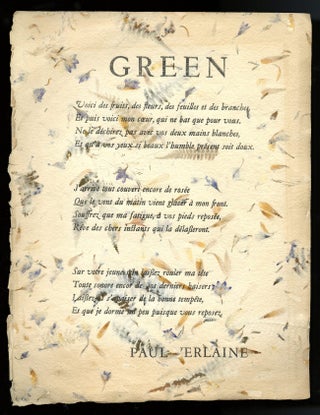 GREEN
Voici des fruits, des fleurs, des feuilles et des branches,
Et puis voici mon cœur, qui ne bat que pour vous.
Ne le déchirez pas avec vos deux mains blanches,
Et qu'à vos yeux si beaux l'humble présent soit doux.
J'arrive tout couvert encore de rosée
Que le vent du matin vient glacer à mon front.
Souffrez que ma fatigue, à vos pieds reposée,
Rêve des chers instants qui la délasseront.
Sur votre jeune sein laissez rouler ma tête
Toute sonore encor de vos derniers baisers;
Laissez-la s'apaiser de la bonne tempête,
Et que je dorme un peu puisque vous reposez.
PAUL VERLAINE